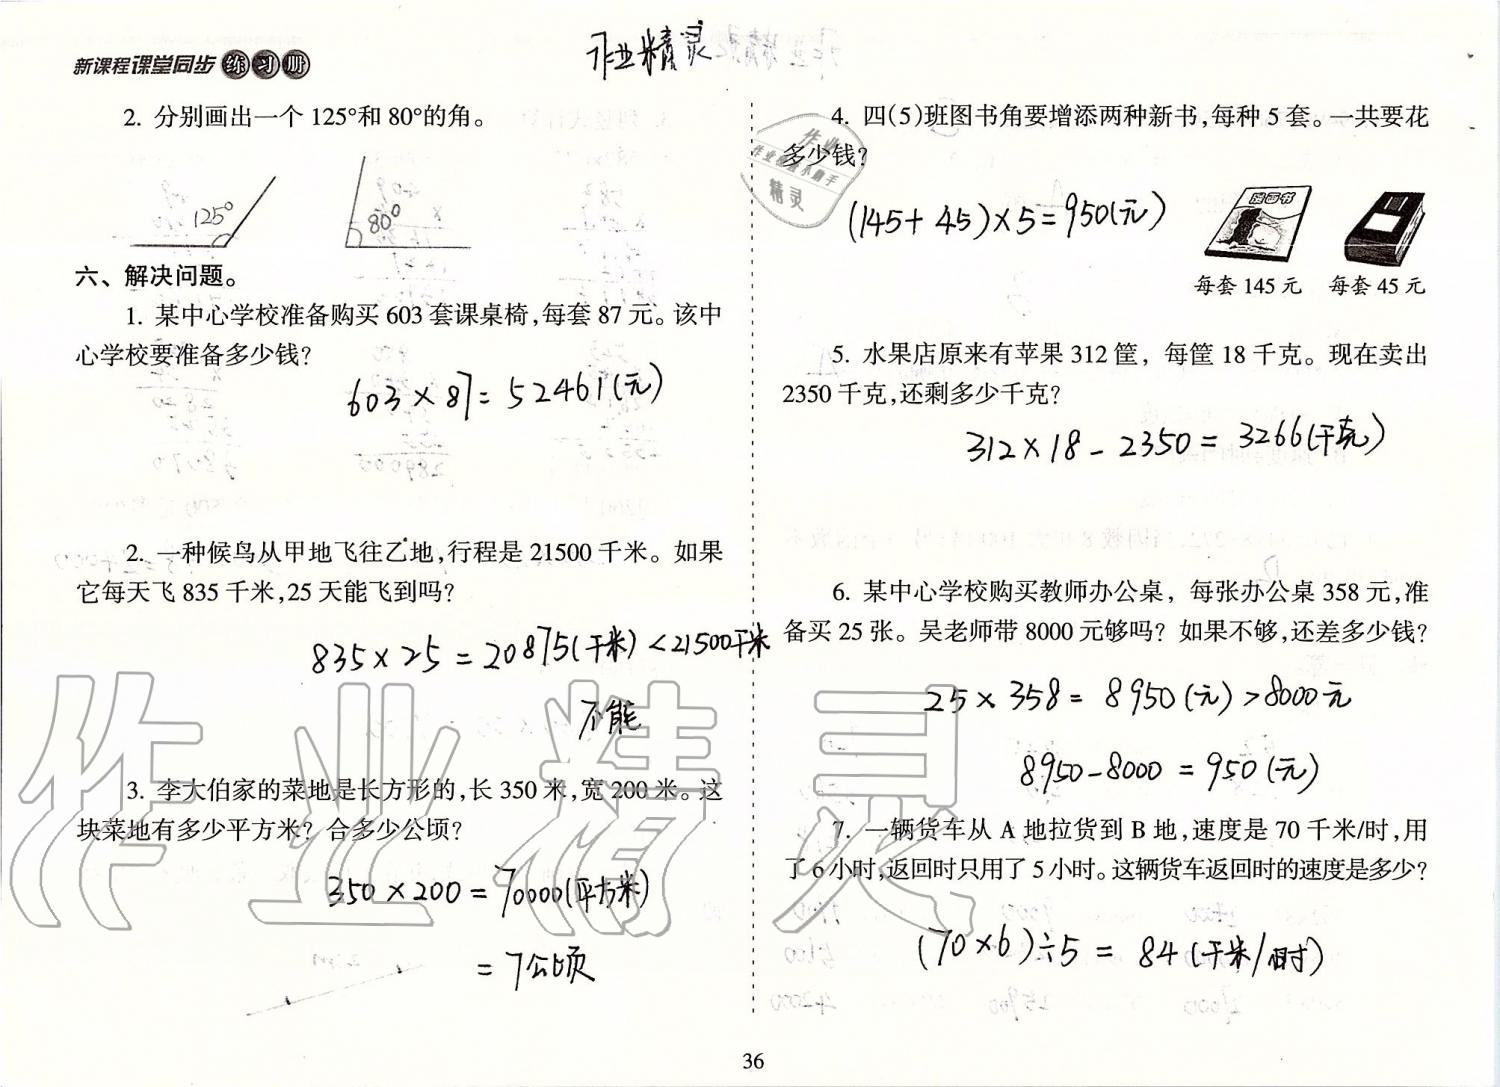 新课程课堂同步练习册
作业精灵
2. 分别画出一个 125°和 80°的角。
125°
80°
六、解决问题。
1. 某中心学校准备购买 603 套课桌椅,每套 87 元。该中
心学校要准备多少钱?
603×87=52461(元)
2. 一种候鸟从甲地飞往乙地,行程是 21500 千米。如果
它每天飞 835 千米,25 天能飞到吗?
835×25=20875(千米)<21500千米
不能
3. 李大伯家的菜地是长方形的,长 350 米,宽 200 米。这
块菜地有多少平方米? 合多少公顷?
350×200=70000(平方米)
=7公顷
4. 四(5)班图书角要增添两种新书,每种 5 套。一共要花
多少钱?
(145+45)×5=950(元)
漫画书
每套 145 元 每套 45 元
5. 水果店原来有苹果 312 筐，每筐 18 千克。现在卖出
2350 千克,还剩多少千克?
312×18-2350=3266(千克)
6. 某中心学校购买教师办公桌，每张办公桌 358 元,准
备买 25 张。吴老师带 8000 元够吗? 如果不够,还差多少钱?
25×358=8950(元)>8000元
8950-8000=950(元)
7. 一辆货车从 A 地拉货到 B 地,速度是 70 千米/时,用
了 6 小时,返回时只用了 5 小时。这辆货车返回时的速度是多少?
(70×6)÷5=84(千米/时)
36
作业精灵
作业
精灵